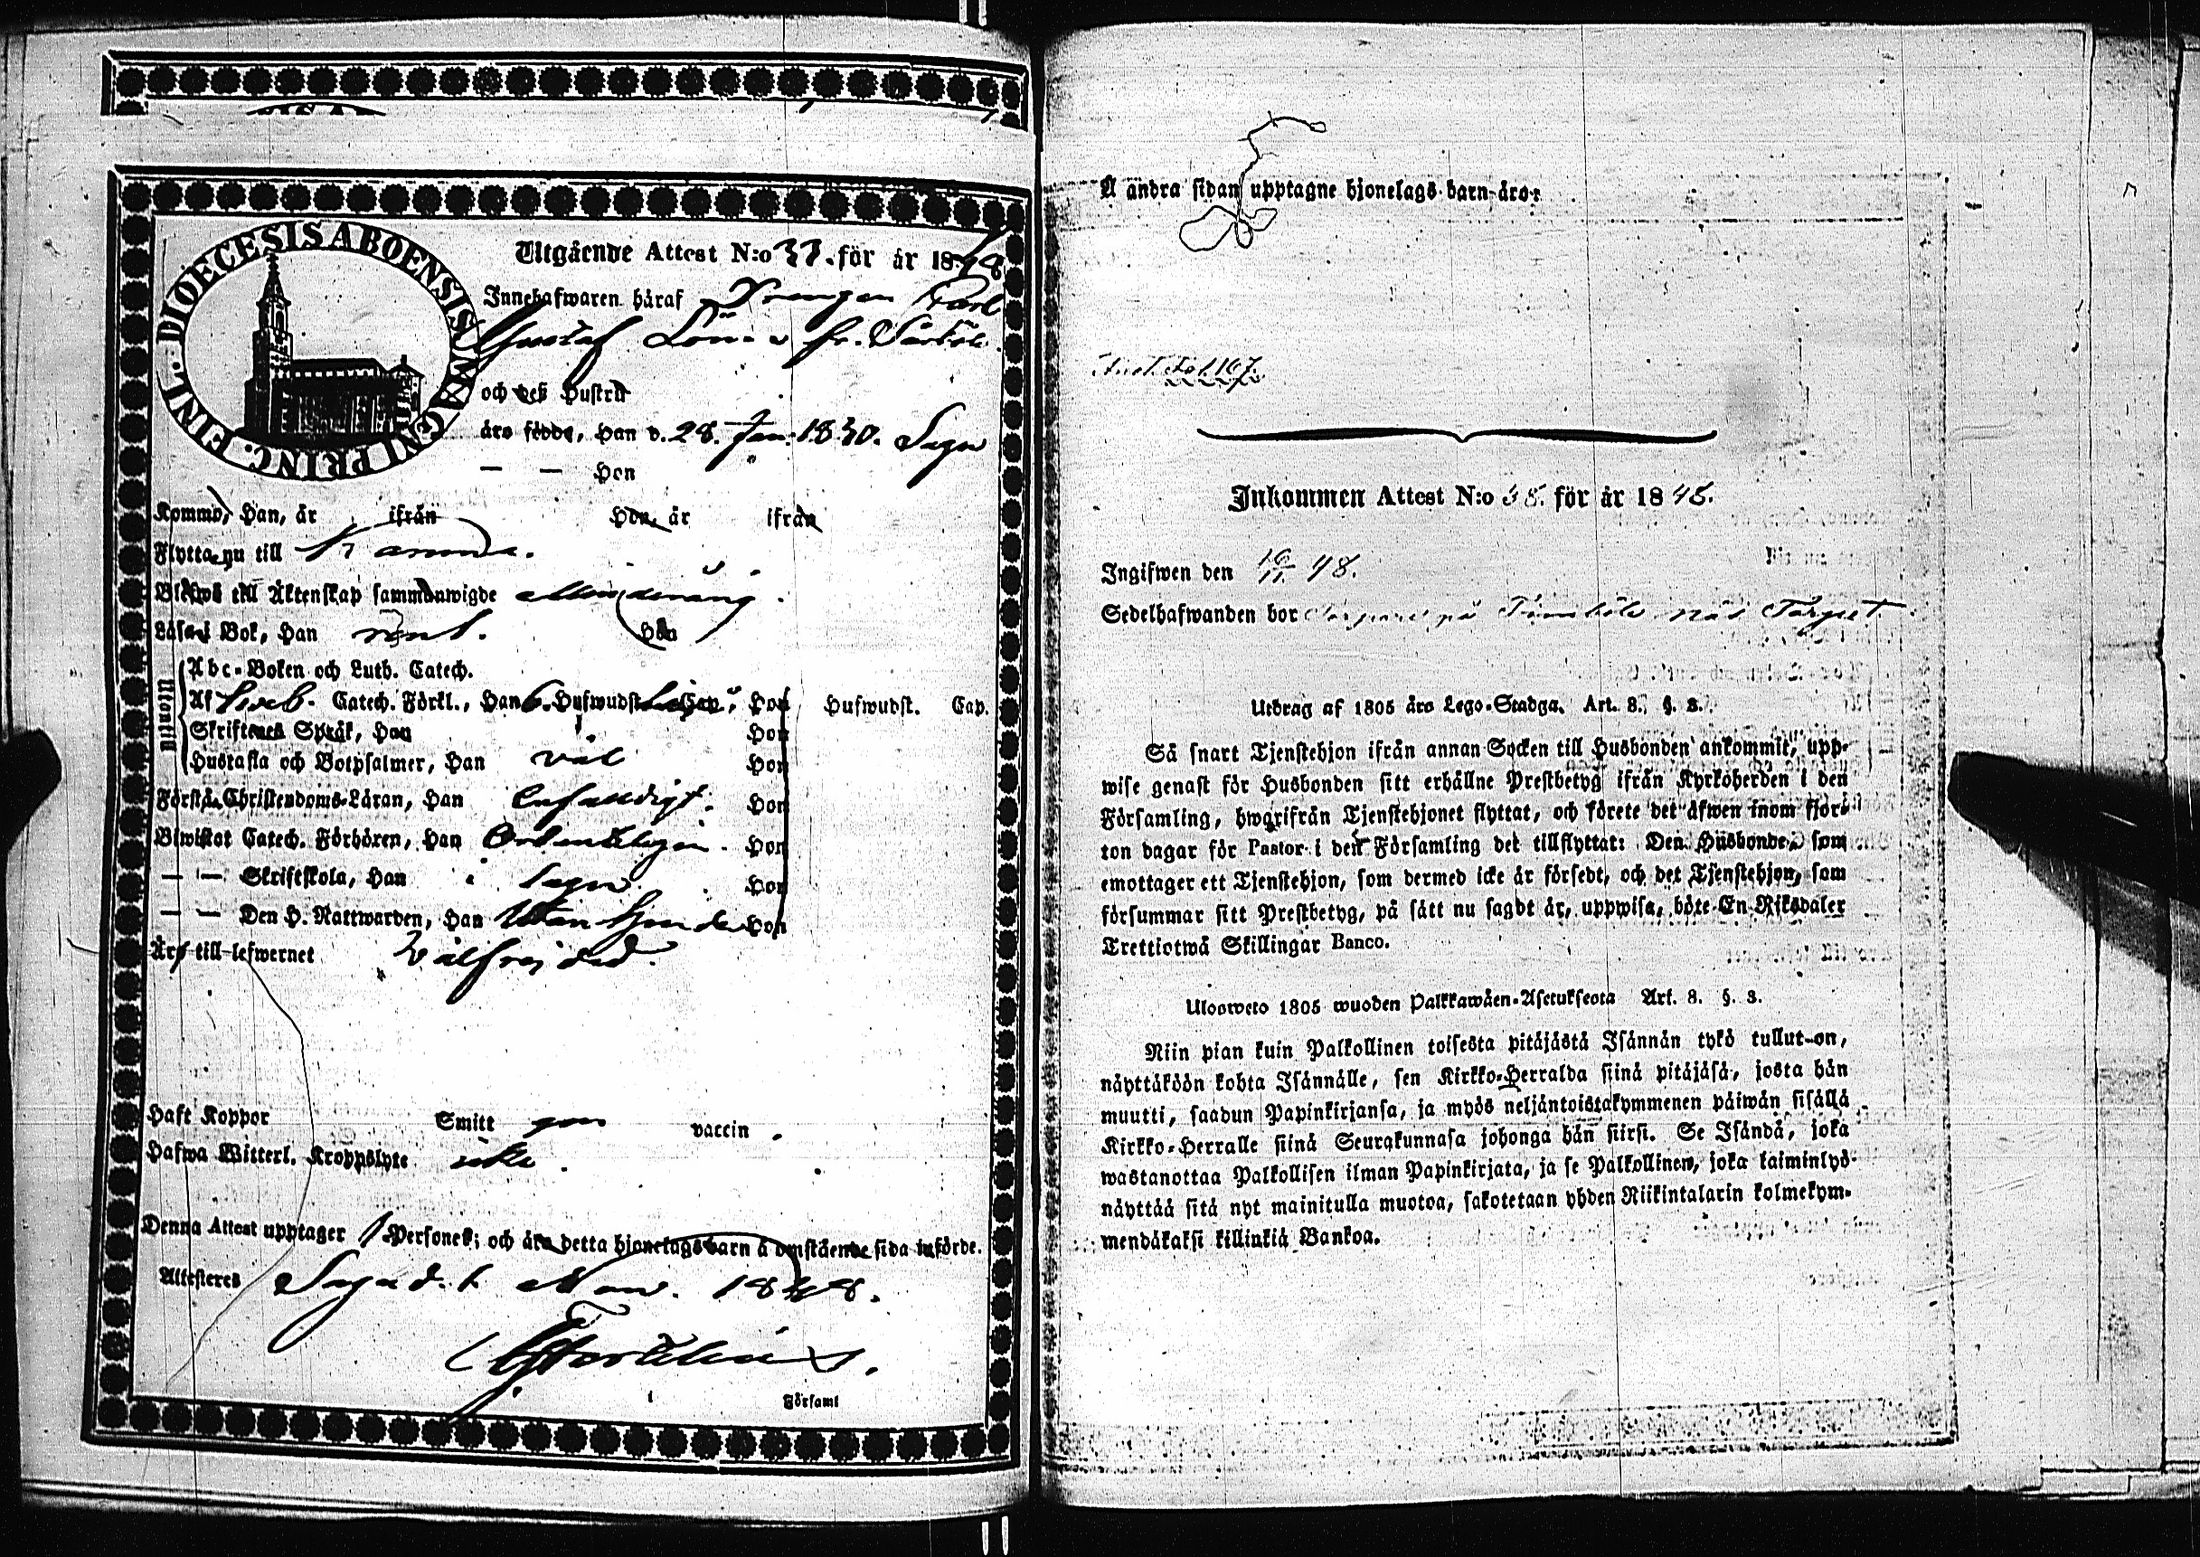 DIOECESIS ABOENSIS MAGNI PRINC. FINL.
Utgående Attest N:o 33. för år 1848
Innehafwaren häraf Drengen Carl
Gustaf Lönn fr.
och deß Hustru
äro födde, Han d. 28. Jan. 1830. Sagu
— — Hon
Kommo, Han, år ifrån Hon, år ifrån
Flytta nu till
Blefwo till Äktenskap sammanwigde Minderårig.
Läsa i Bok, Han rent. Hon
Utantill
Abc-Boken och Luth. Catech.
Af Sweb. Catech. Förkl., Han 6. Hufwudst. Cap., Hon Hufwudst. Cap.
Skriftenes Språk, Han Hon
Hustafla och Botpsalmer, Han väl Hon
Förstå Christendoms-Läran, Han enfaldigt. Hon
Biwistat Catech. Förhören, Han Ordentligen. Hon
— — Skriftskola, Han i Sagu. Hon
— — Den H. Nattwarden, Han Hon
Äro till lefwernet välfrejdad.
Haft Koppor Smitt gm vaccin.
Hafwa Witterl. Kroppslyte icke.
Denna Attest upptager 1 Personer; och äro detta hjonelags barn å omstående sida införde.
Attesteres Sagu d. 1 Nov. 1848.
i Församl
Å andra sidan upptagne hjonelags barn äro:
Fol. 167.
Inkommen Attest N:o 38. för år 1848.
Ingifwen den 10/11 48.
Sedelhafwanden bor på
Utdrag af 1805 års Lego-Stadga. Art. 8. §. 3.
Så snart Tjenstehjon ifrån annan Socken till Husbonden ankommit, upp-
wise genast för Husbonden sitt erhållne Prestbetyg ifrån Kyrkoherden i den
Församling, hwarifrån Tjenstehjonet flyttat, och förete det äfwen inom fjor-
ton dagar för Pastor i den Församling det tillflyttat: Den Husbonde, som
emottager ett Tjenstehjon, som dermed icke är försedt, och det Tjenstehjon, som
försummar sitt Prestbetyg, på sätt nu sagdt är, uppwisa, böte En Riksdaler
Trettiotwå Skillingar Banco.
Ulosweto 1805 wuoden Palkkawäen-Asetuksesta Art. 8. §. 3.
Niin pian kuin Palkollinen toisesta pitäjästä Isännän tykö tullut on,
näyttäköön kohta Isännälle, sen Kirkko-Herralda siinä pitäjäsä, josta hän
muutti, saadun Papinkirjansa, ja myös neljäntoistakymmenen päiwän sisällä
Kirkko-Herralle siinä Seurakunnasa johonga hän siirsi. Se Isändä, joka
wastanottaa Palkollisen ilman Papinkirjata, ja se Palkollinen, joka laiminlyö
näyttää sitä nyt mainitulla muotoa, sakotetaan yhden Riikintalarin kolmekym-
mendäkaksi killinkiä Bankoa.